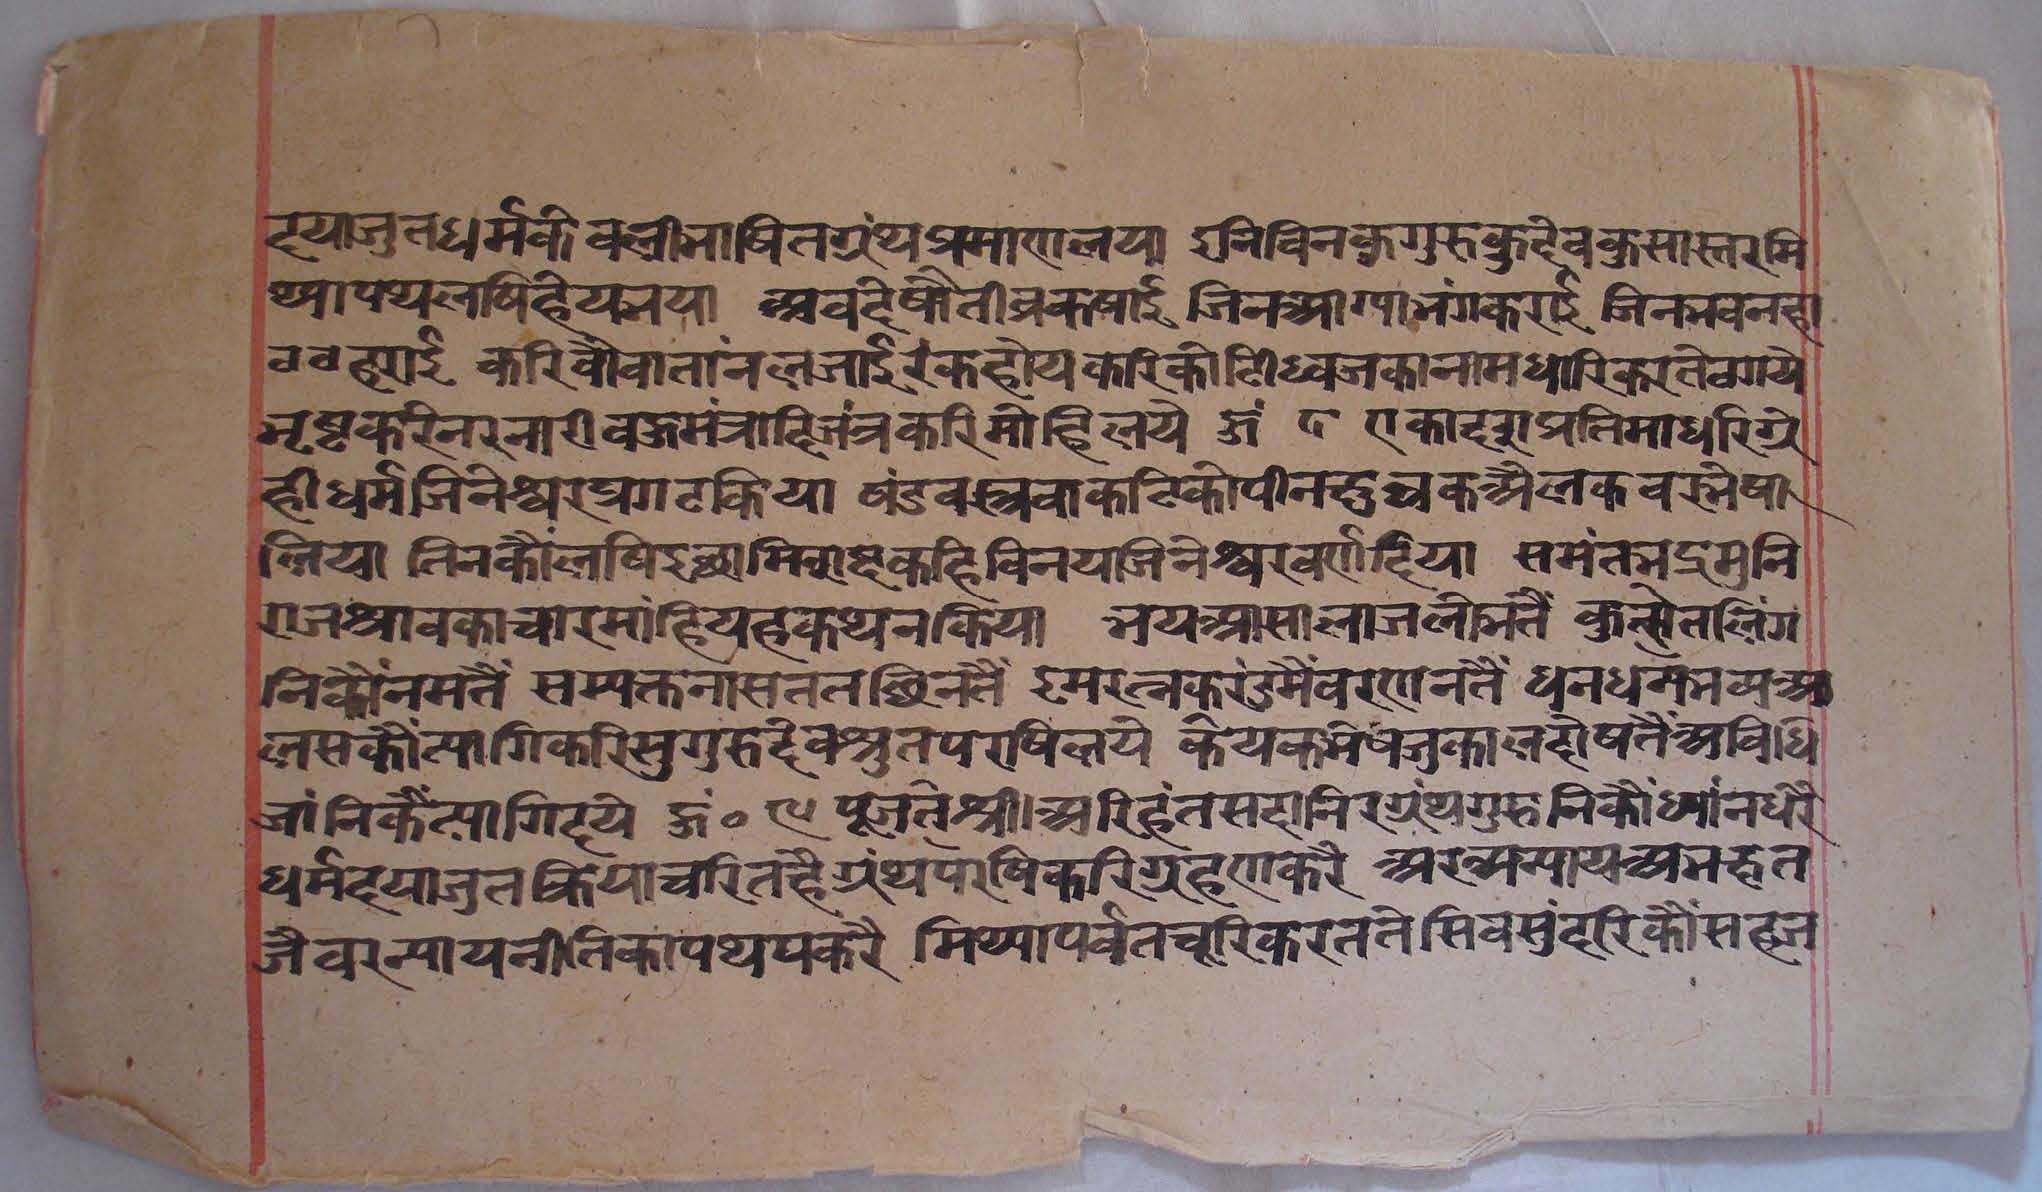 दयाजुतधर्मकेवलीभाषितग्रंथप्रमाणलया इनिविनकुगुरुकुदेवकुसास्तरमि
थ्यापथलषिहेयनया अवदेषौतीव्रकषाई जिनआग्याभंगकराई जिनभवनहा
ववहराई करिषौवातांनलजाई रंकहोयकरिकोटिध्वजकानामधारिकरतेवगये
भृष्टकरैनरनारीवज्रमंत्रादिजंत्रकरिमोहिलये ॐ ८ एकादशप्रतिमाधरिग्रे
हीधर्मजिनेश्वरप्रगटकिया षंडवस्त्रवाकटिकोपीनछुल्लकअैलकवरभेषा
लिया तिनकौंलषिइछामिशब्दकहिविनयजिनेश्वरवर्णदिया समंतभद्रमुनि
राजश्रावकाचारमांहियहकथनकिया भयआसालाजलोभतैं कुत्सितलिंग
निकौंनमतैं सम्यक्तनासततछिनतैं इमरत्नकरंडमैंवरणनतैं धनधर्मभव्यआ
लसकौंत्यागिकरिसुगुरुदेवश्रुतपरषिलये केयकमेषजुकालदोषतैंअविधि
जांनिकैंत्यागिदये ॐ० ९ पूजतश्रीअरिहंतसदानिरग्रंथगुरुनिकौंध्यांनधरैं
धर्मदयाजुतक्रियाचरितहैग्रंथपरषिकरिग्रहणकरै अरअन्यायअभक्षत
जैवरन्यायनीतिकापथपकरै मिथ्यापर्वतचूरिकरततेसिवसुंदरिकौंसहज